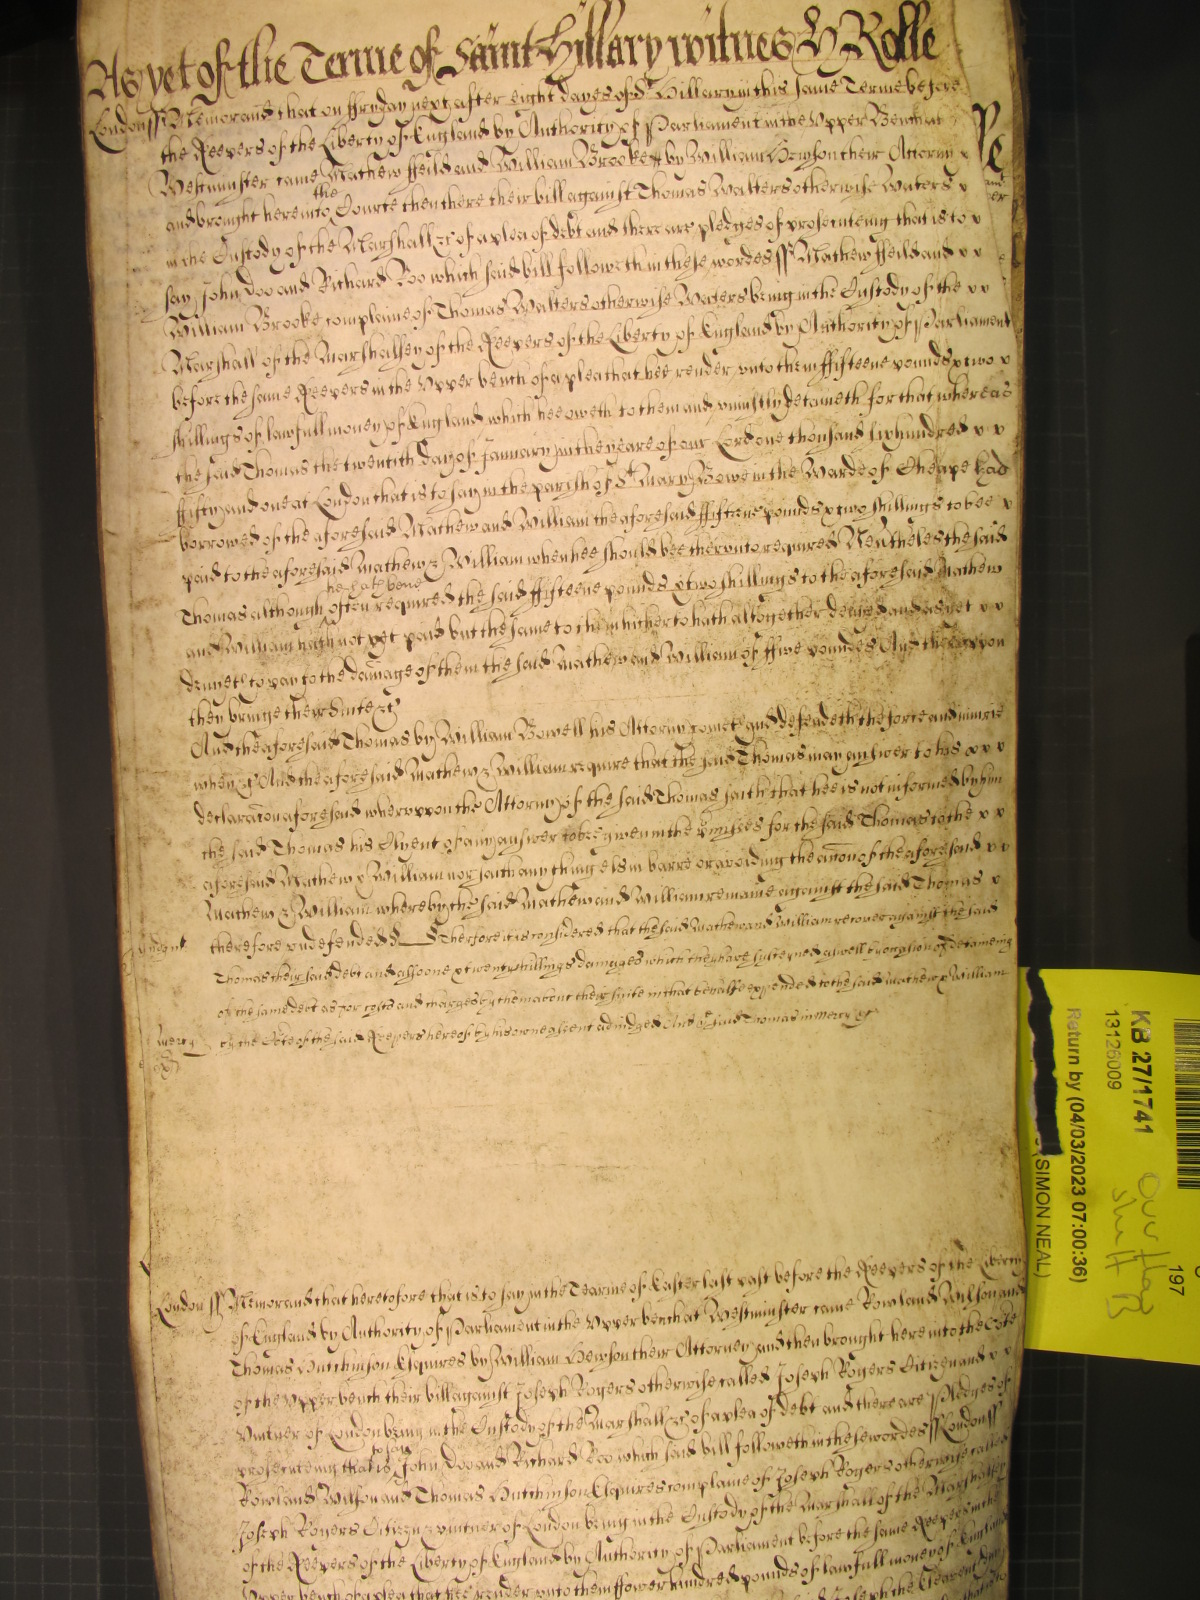 As yet of the Terme of Saint Hillary witnes H Rolle
London ss Memorand that on ffryday next after eight dayes of St Hillary in this same Terme before
the Keepers of the Liberty of England by Authority of Parliament in the Upper Bench at
Westminster came Mathew ffeild and William Brooke by William Hewson their Attorny x
and brought here into the Courte then there their bill against Thomas Walters otherwise Waters x
in the Custody of the Marshall &c of a plea of debt and there are pledges of prosecuteing that is to x
say John Doo and Richard Roo which said bill followeth in these wordes ss Mathew ffeild and x x
William Brooke complaine of Thomas Walters otherwise Waters being in the Custody of the x x
Marshall of the Marshalsey of the Keepers of the Liberty of England by Authority of Parliament
before the same Keepers in the Upper bench of a plea that hee render unto them ffifteene pounds & two x
shillings of lawfull money of England which hee oweth to them and uniustly detaineth for that whereas
the said Thomas the twentith day of January in the yeare of our Lord one thousand six hundred x x
ffifty and one at London that is to say in the parish of St Mary Bowe in the Warde of Cheape had
borrowed of the aforesaid Mathew and William the aforesaid ffifteene pounds & two shillings to bee x
paid to the aforesaid Mathew & William when hee should bee therunto required Neutheles the said
Thomas although he hath bene often required the said ffifteene pounds & two shillings to the aforesaid Mathew
and William hath not yet paid but the same to them hitherto hath altogether denyed and as yet x x
denyeth to pay to the damage of them the said Mathew and William of ffive poundes And thereuppon
they bringe their suite &c
And the aforesaid Thomas by William Bowell his Attorny cometh and defendeth the force and iniurie
when &c And the aforesaid Mathew & William require that the said Thomas may answer to his x x x
declaracon aforesaid wheruppon the Attorny of the said Thomas saith that hee is not informed by him
the said Thomas his Clyent of any answer to bee given in the premises for the said Thomas to the x x
aforesaid Mathew & William nor saith any thinge els in barre or avoiding the accon of the aforesaid x x
Mathew & William whereby the said Mathew and William remaine against the said Thomas x
therefore undefended &c Therfore it is considered that the said Mathew and William recover against the said
Thomas their said debt and alsoe one & twenty shillings damages which they have susteyned aswell by occasion of detaineing
of the same debt as for costs and charges by them about their suite in that behalfe expended to the said Mathew & William
by the Cote of the said Keepers hereof by his owne assent adiudged And the said Thomas in mercy &c
Judgmt
Mercy
London ss Memorand that heretofore that is to say in the Tearme of Easter last past before the Keepers of the Liberty
of England by Authority of Parliament in the Upper bench at Westminster came Rowland Wilson and
Thomas Hutchinson Esquires by William Hewson their Attorney and then brought here into the Cote
of the Upper bench their bill against Joseph Rogers otherwise called Joseph Rogers Citizen and x x
vintner of London being in the Custody of the Marshall &c of a plea of debt and there are Pledges of
prosecuteing that is to say John Doo and Richard Roo which said bill followeth in these wordes ss London ss
Rowland Wilson and Thomas Hutchinson Esquires complaine of Joseph Rogers otherwise called
Joseph Rogers Citizen & vintner of London being in the Custody of the Marshall of the Marshalsey
of the Keepers of the Liberty of England by Authority of Parliament before the same Keepers in the
Upper bench of a plea that hee render unto them ffower hundred pounds of lawfull money of England
KB 27/1741
13126009
Return by (04/03/2023 07:00:36)
(SIMON NEAL)
197